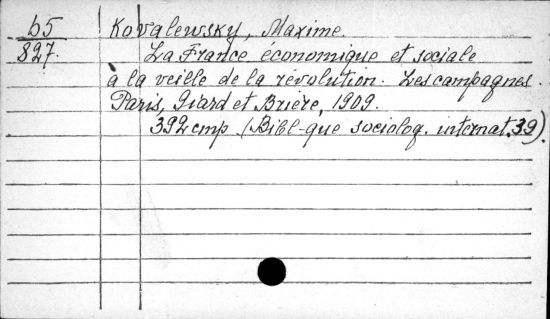 b5
827.
Kovalewsky, Maxime.
La France économique et sociale
à la veille de la révolution. Les campagnes.
Paris, Giard et Brière, 1909.
392 стр (Bibl-que sociolog. internat. 39).